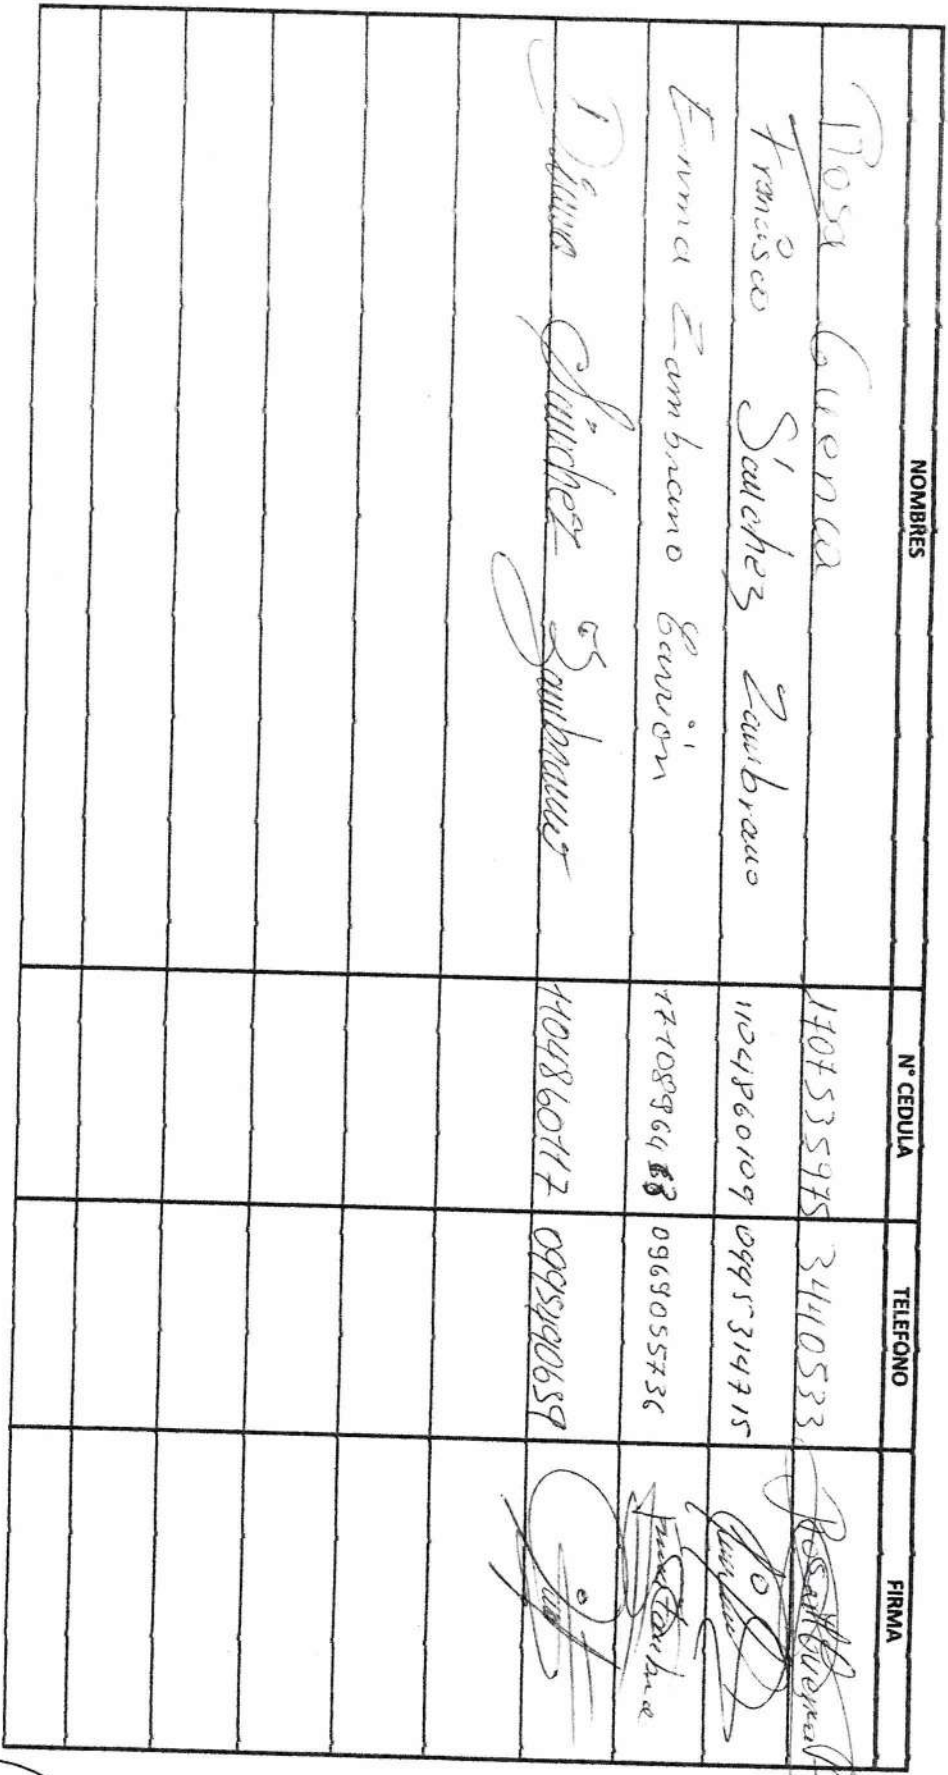 NOMBRES N° CEDULA TELEFONO FIRMA
Rosa Cuenca 1707535975 3410533
Francisco Sánchez Zambrano 1104860109 0995314715
Enma Zambrano Carrión 0969055736
Diana Sánchez Zambrano 1104860117 0995490659